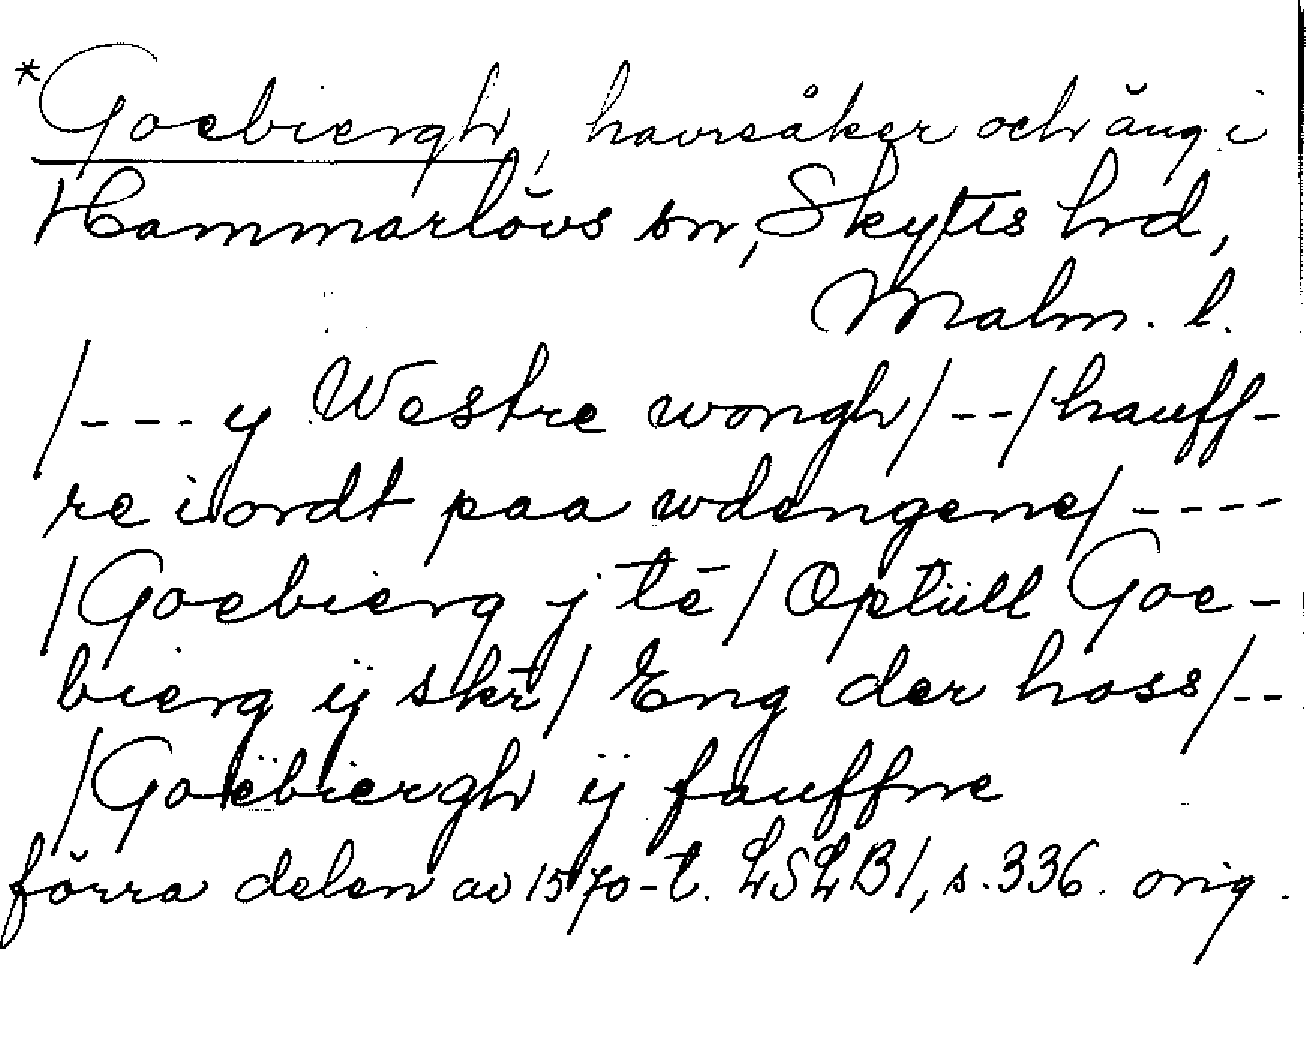 *Goebiergh, havreåker och äng i
Hammarlövs sn, Skytts hd,
Malm. l.
/--- y Westre wongh/--/hauff-
re iordt paa wdengene/----
/Goebierg j tē/Optüll Goe-
bierg ÿ skr̄/ Eng der hoss/--
/Goëbiergh ÿ fauffne
förra delen av 1570-t. LSLB1, s.336. orig.